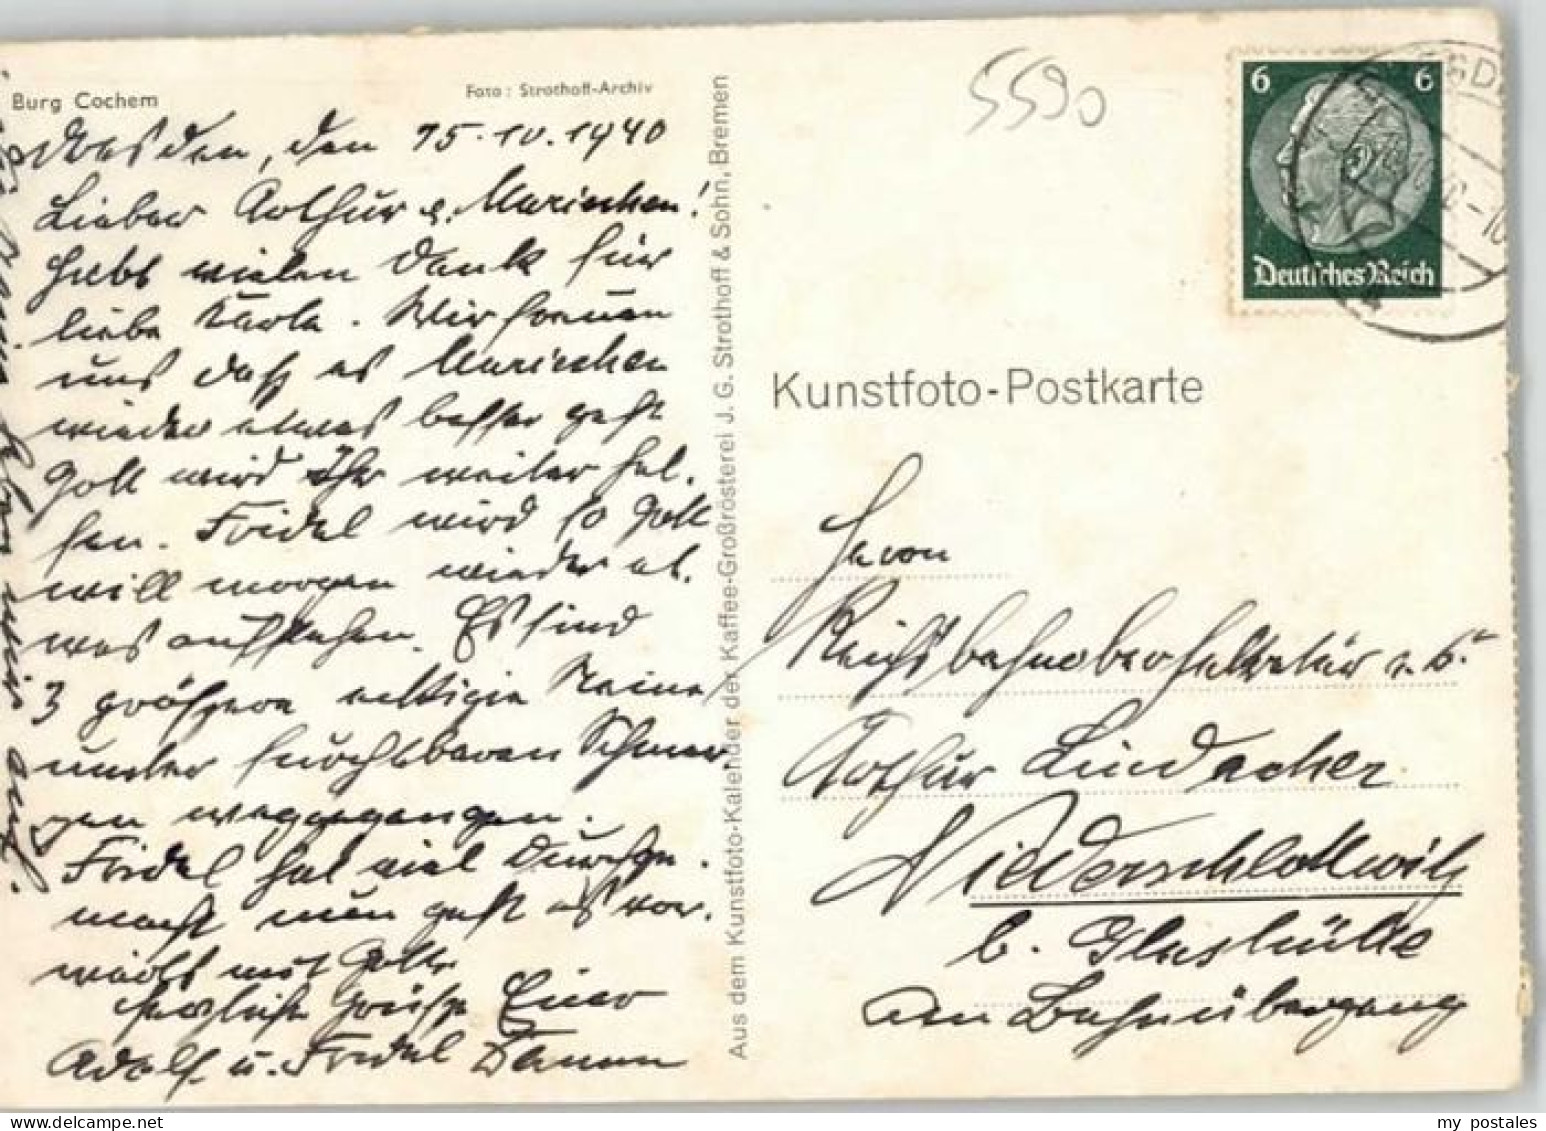 Burg Cochem
Foto: Strothoff-Archiv
Dresden, den 15.10.1940
Lieber Arthur u. Mariechen!
Habt vielen Dank für
liebe Karte. Wir freuen
uns daß es Mariechen
wieder etwas besser geht
Gott wird Ihr weiter hel-
fen. Friedel wird so Gott
will morgen wieder et-
was aufstehen. Es sind
3 größere Steine
unter furchtbaren Schmer-
zen weggegangen.
Friedel hat viel durchge-
macht nun geht es vor-
wärts mit Gott.
herzliche Grüße Euer
Adolf u. Friedel
Aus dem Kunstfoto-Kalender der Kaffee-Großrösterei J. G. Strothoff & Sohn, Bremen
5590
6 6
Deutsches Reich
Kunstfoto-Postkarte
Herrn
Reichsbahnobersekretär
Arthur Lindacker
Niederschlottwitz
b. Glashütte
am Bahnübergang
my postales